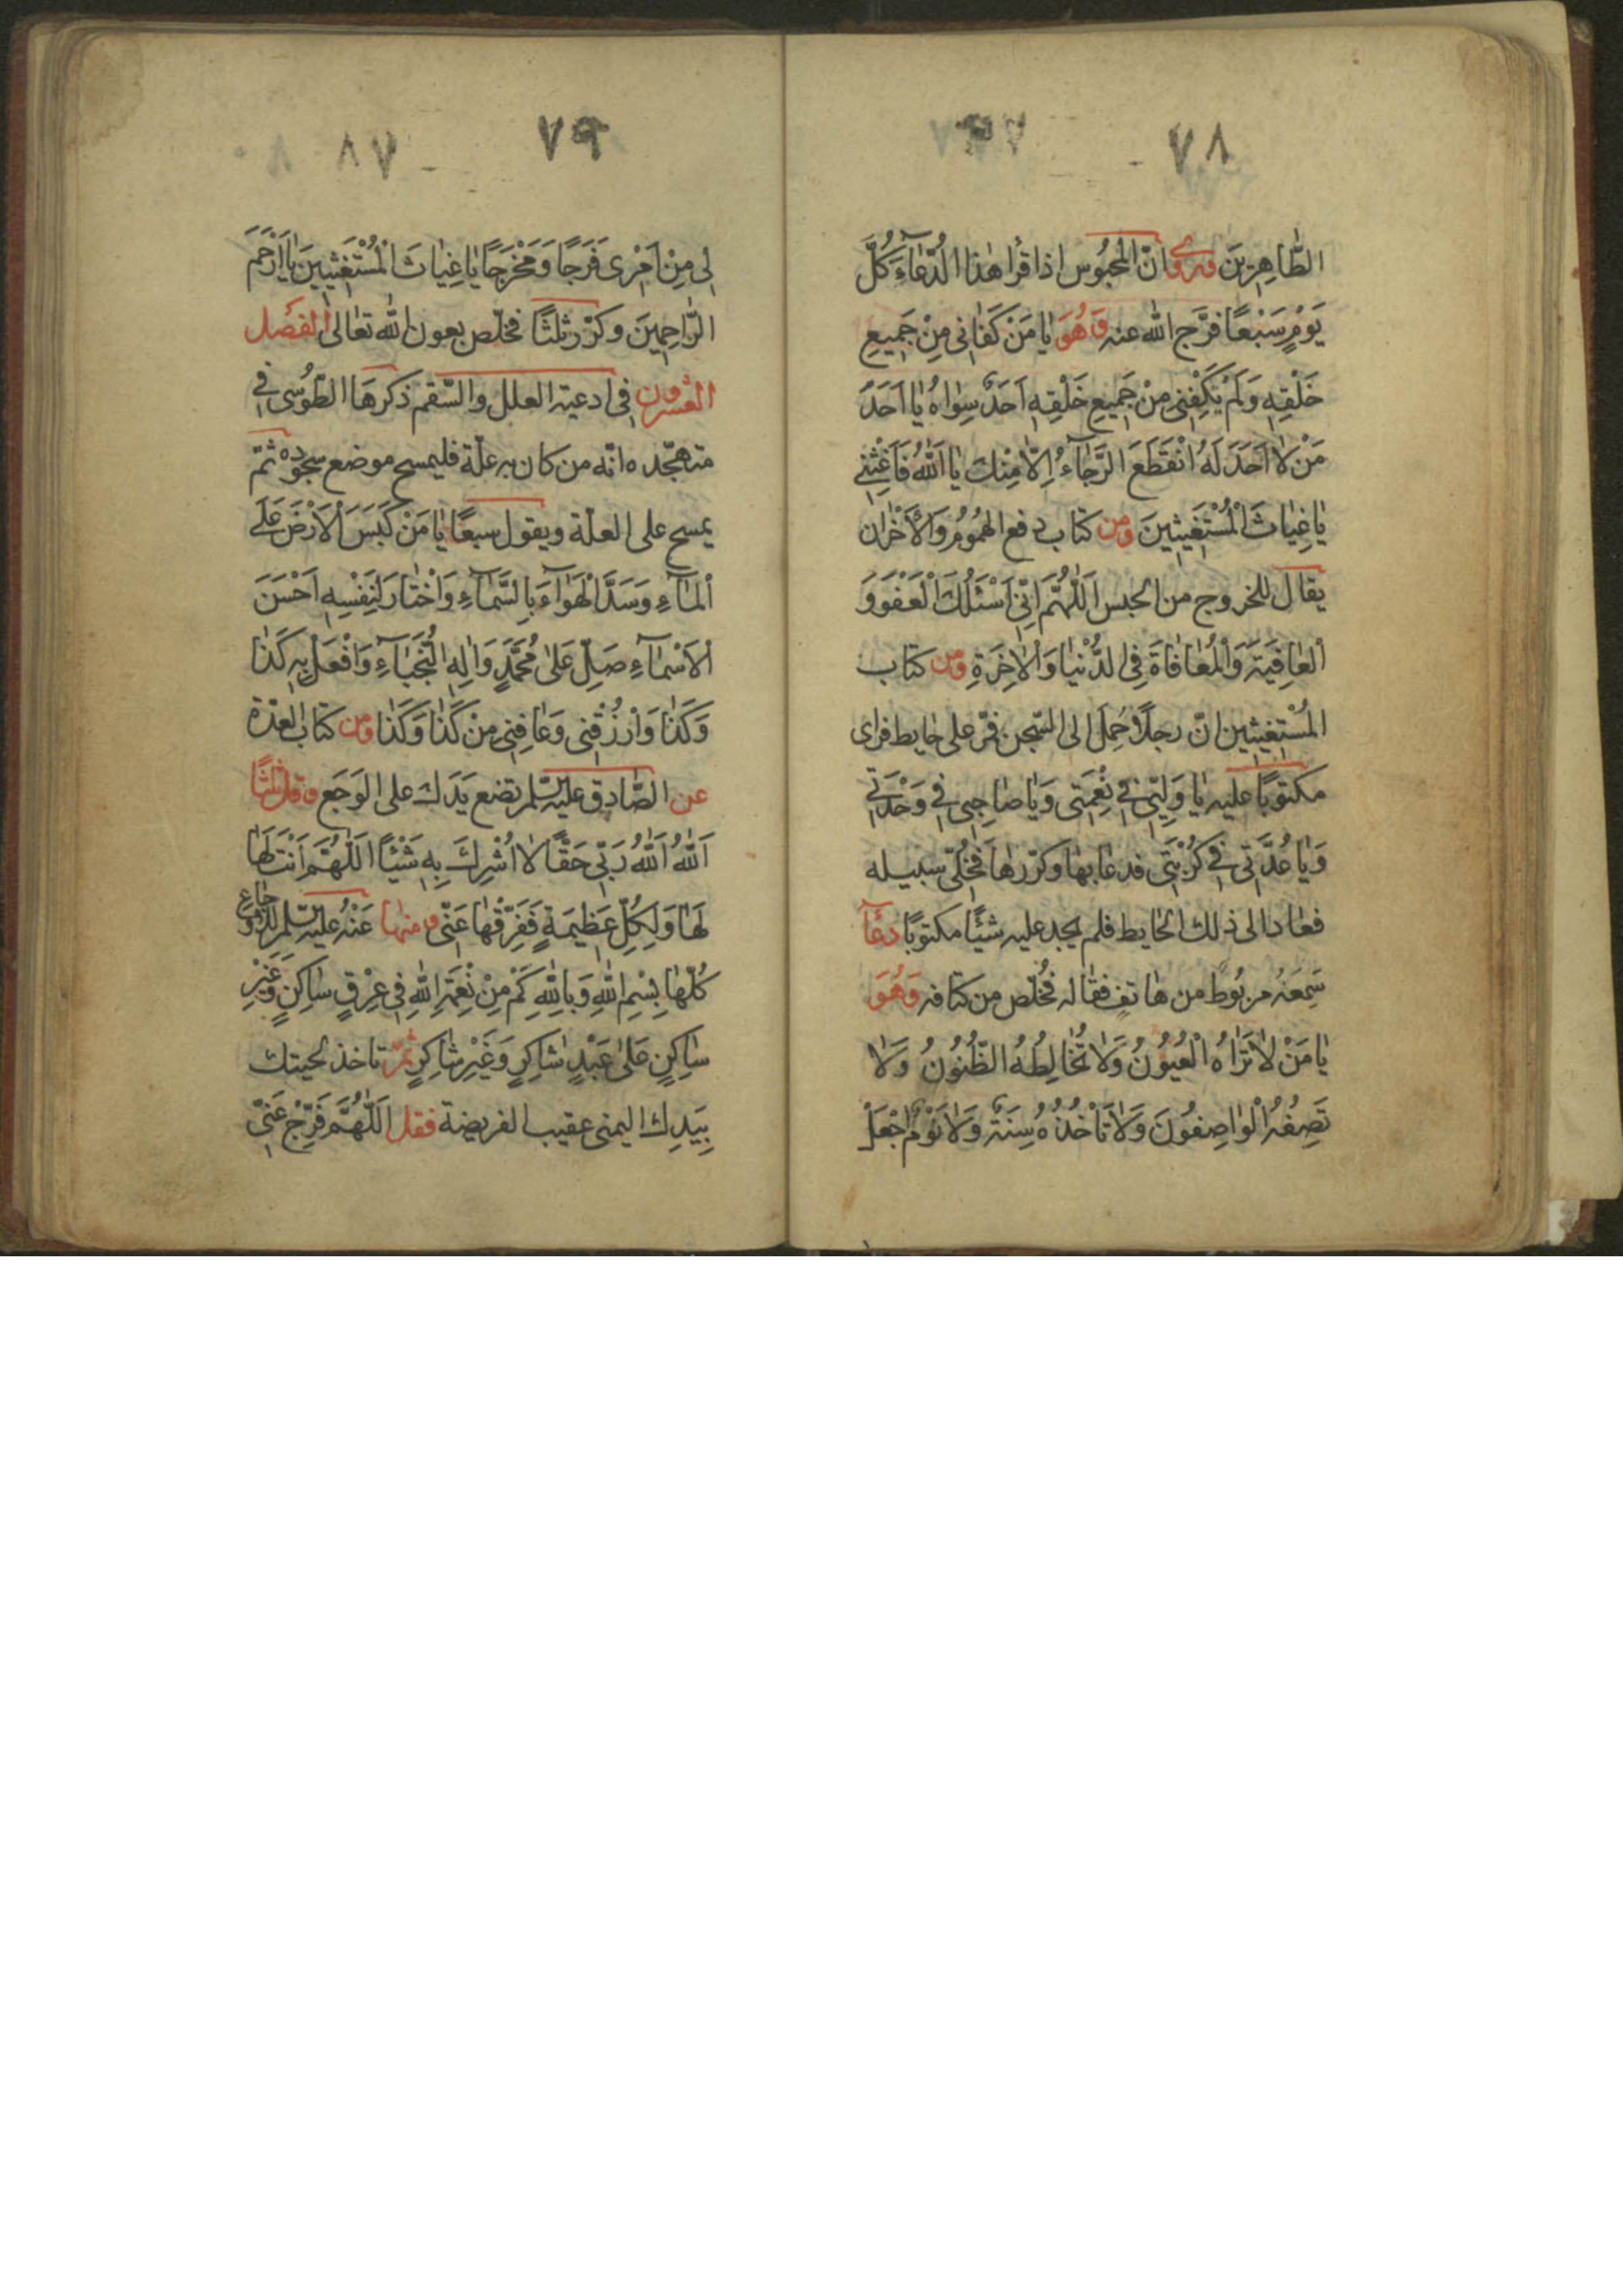 ٧٨
الطَّاهِرِينَ وروى انّ الْمَحْبُوس اذا قرأ هٰذا الدُّعَاءَ كُلَّ
يَوْمٍ سَبْعًا فرَّج الله عنه وَهُوَ يٰا مَنْ كَفٰانى مِنْ جَمِيعِ
خَلْقِهِ وَلَمْ يَكْفِنى مِنْ جَمِيعِ خَلْقِهِ اَحَدٌ سِوٰاهُ يٰا اَحَدَ
مَنْ لٰا اَحَدَ لَهُ اِنْقَطَعَ الرَّجٰآءُ اِلّا مِنْكَ يٰا اَللّٰهُ فَاَغِثْنِى
يٰا غِيٰاثَ الْمُسْتَغِيثِينَ ومن كتاب دفع الهُمُومُ وَالْاَحْزان
يقال للخروج من الحبس اَللّٰهُمَّ اِنِّى اَسْئَلُكَ الْعَفْوَ وَ
الْعٰافِيَةَ وَالْمُعٰافٰاةَ فِى الدُّنْيٰا وَالْاٰخِرَةِ ومن كتاب
المُسْتَغِيثِين انّ رجلًا حُمِلَ الى السّجن فمّر على حايط فراى
مكتوبًا عليه يٰا وَلِيّى فِى نِعْمَتى وَيٰا صٰاحِبى فى وَحْدَتى
وَيٰا عُدَّتى فى كُرْبَتى فدعٰا بهٰا وكرّرهٰا فخُلّى سبيله
فعٰاد الى ذلك الحٰايط فلم يجد عليه شيئًا مكتوبًا دعٰآ
سَمِعَهُ مربُوط من هٰاتفٍ فقٰاله فخُلّص من كتافه وَهُوَ
يٰا مَنْ لٰا تَرٰاهُ الْعُيُوُنُ وَلٰا تُخٰالِطُهُ الظُّنُوُنُ وَلٰا
تَصِفُهُ الْوٰاصِفُونَ وَلٰا تَاْخُذُهُ سِنَةٌ وَلٰا نَوْمٌ اجْعَلْ
٧٩
٨٧
لِى مِنْ اَمْرِى فَرَجًا وَمَخْرَجًا يٰا غِيٰاثَ الْمُسْتَغِثيِينَ يٰا اَرْحَمَ
الرّٰاحِمِينَ وكرّر ثلثًا فخلّص بعون الله تعٰالى الفصل
العشرون فى ادعية العلل والسّقم ذكرهَا الطّوُسى فى
متهجّده انّه من كان به علّة فليمسح موضع سجوده ثمّ
يمسح على العلّة ويقول سبعًا يٰا مَنْ كَبَسَ الْاَرْضَ عَلَى
الْمٰآءِ وَسَدَّ الْهَوٰآءَ بِالسَّمٰآءِ وَاخْتٰارَ لِنَفْسِهِ اَحْسَنَ
الْاَسْمٰآءِ صَلِّ عَلٰى مُحَمَّدٍ وَاٰلِهِ النُّجَبٰآءِ وَافْعَلْ بِى كَذٰا
وَكَذٰا وَارْزُقْنِى وَعٰافِنِى مِنْ كَذٰا وَكَذٰا ومن كتاب العدّة
عن الصّادق عليه السّلم تضع يَدَك على الوَجَع وقل ثلثًا
اَللّٰهُ اَللّٰهُ رَبِّى حَقًّا لا اُشْرِكَ بِهِ شَيْئًا اَللّٰهُمَّ اَنْتَ لَهٰا
لَهٰا وَلِكُلِّ عَظِيمَةٍ فَفَرِّقْهٰا عَنِّى ومنها عَنْهُ عليه السّلم للاوجٰاع
كُلّهٰا بِسْمِ اللهِ وَبِاللّٰهِ كَمْ مِنْ نِعْمَةِ اللّٰهِ فِى عِرْقٍ سٰاكِنٍ وَغَيْرِ
سٰاكِنٍ عَلٰى عَبْدٍ شٰاكِرٍ وَغَيْرِ شٰاكِرٍ ثمّ تاخذ لحيتك
بِيَدِك اليمنى عقيب الفريضة فقل اَللّٰهُمَّ فَرِّجْ عَنّى